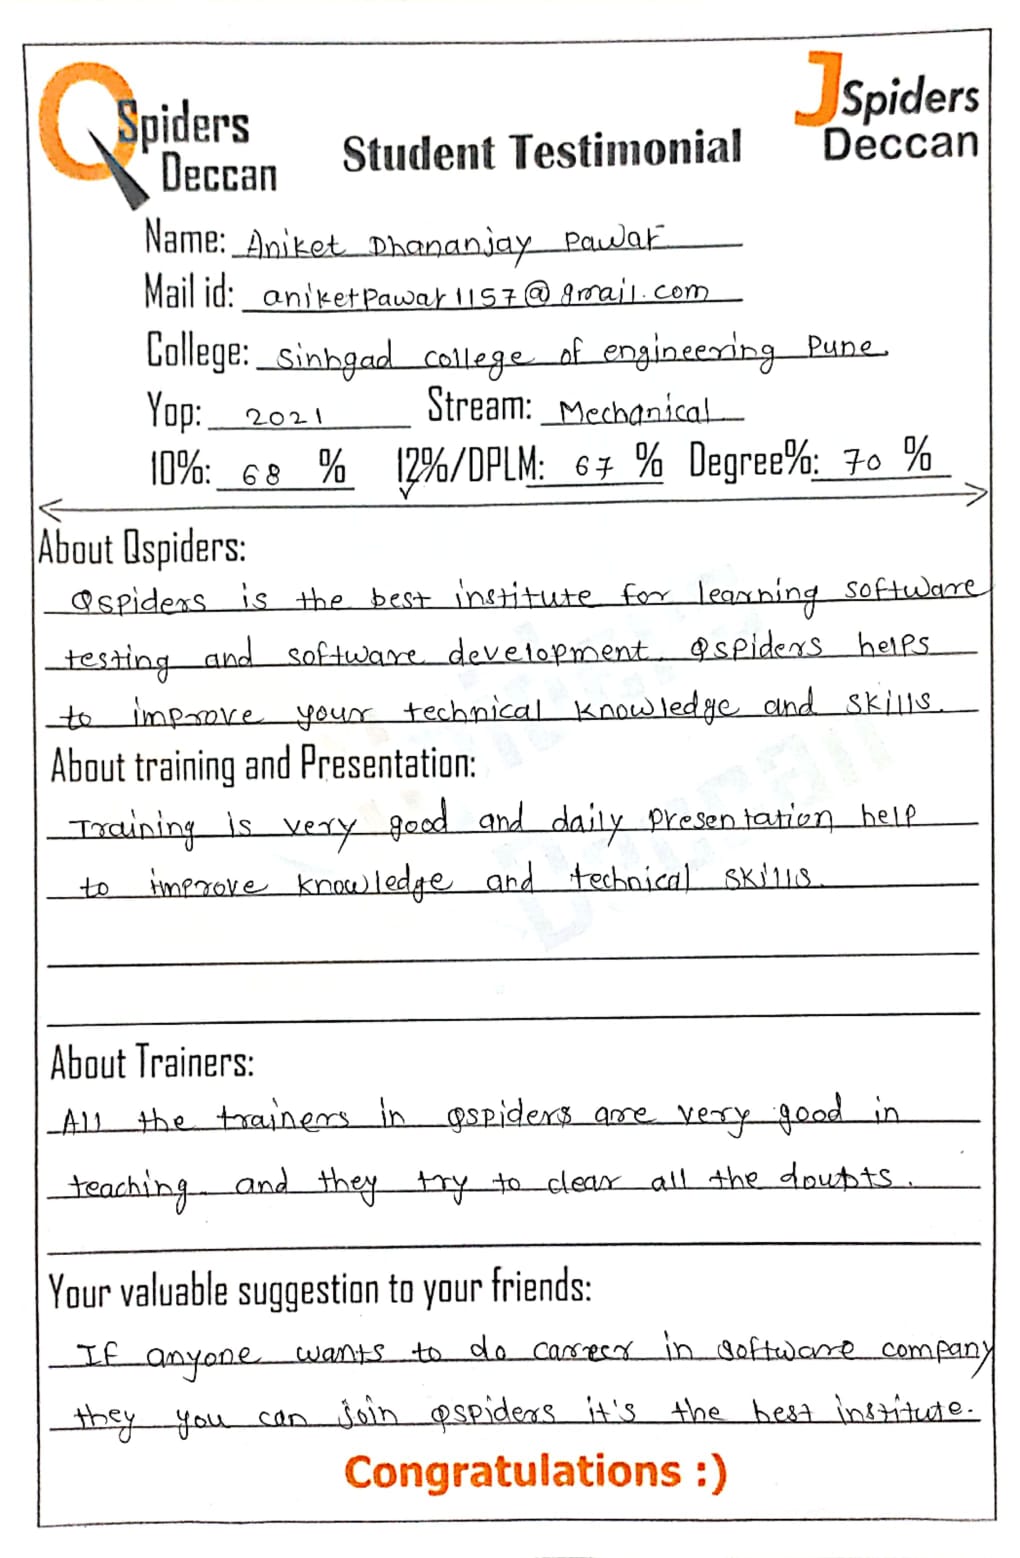 QSpiders
Deccan
JSpiders
Deccan
Student Testimonial
Name: Aniket Dhananjay Pawar
Mail id: aniketpawar1157@gmail.com
College: Sinhgad college of engineering Pune.
Yop: 2021 Stream: Mechanical
10%: 68 % 12%/DPLM: 67 % Degree%: 70 %
About Qspiders:
Qspiders is the best institute for learning software
testing and software development. Qspiders helps
to improve your technical knowledge and skills.
About training and Presentation:
Training is very good and daily presentation help
to improve knowledge and technical skills.
About Trainers:
All the trainers in qspiders are very good in
teaching and they try to clear all the doubts.
Your valuable suggestion to your friends:
If anyone wants to do carrer in software company
they you can join qspiders it's the best institute.
Congratulations :)